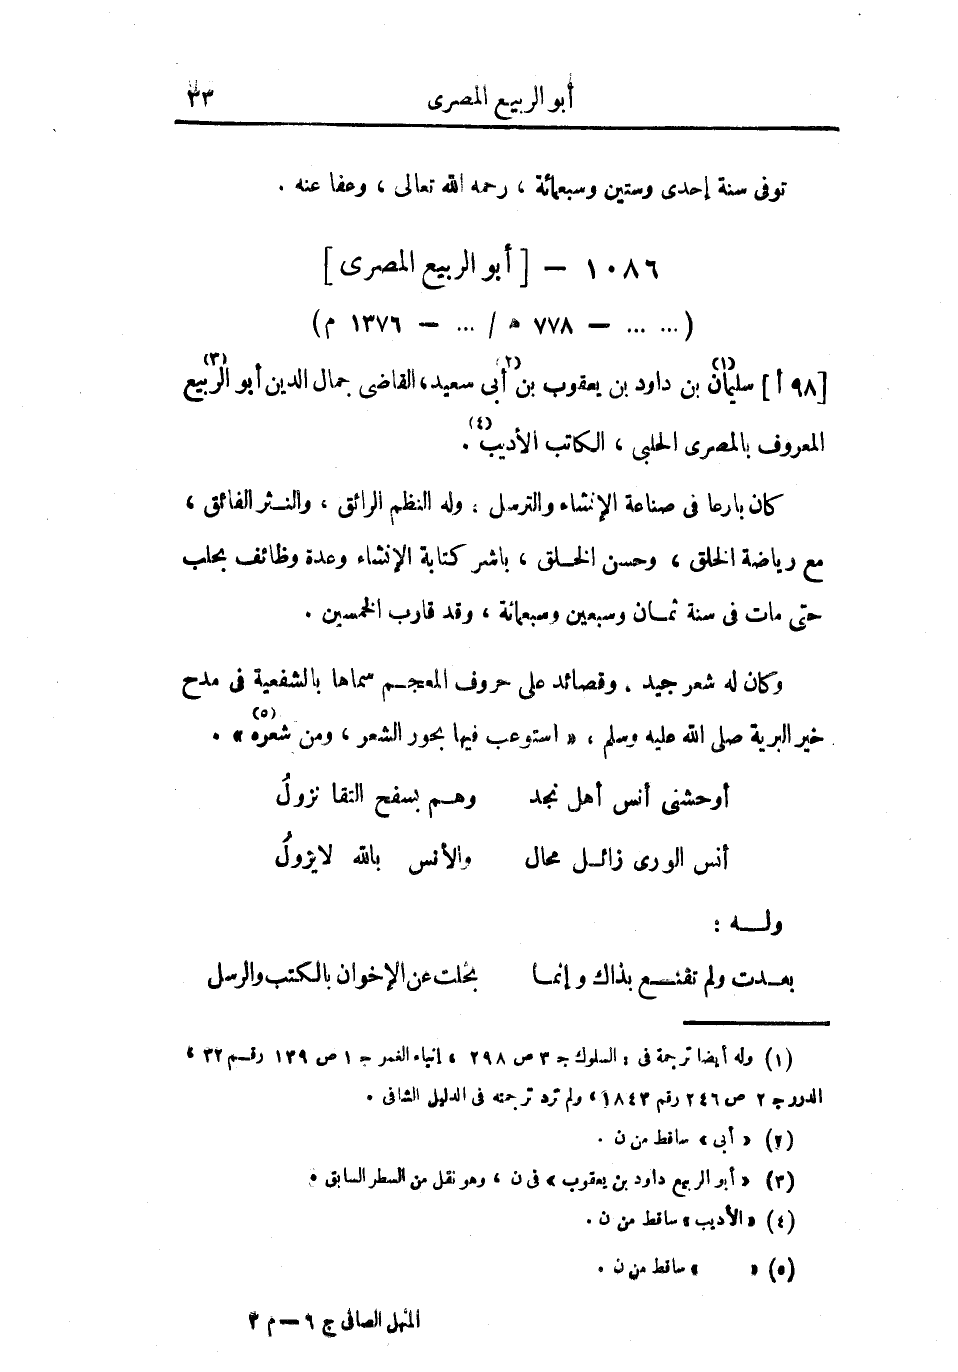 أبو الربيع المصرى ٣٣
توفى سنة إحدى وستين وسبعمائة ، رحمه الله تعالى ، وعفا عنه .
١٠٨٦ – [ أبو الربيع المصرى ]
( ... ... – ٧٧٨ ﻫ / ... – ١٣٧٦ م )
[ ٩٨ أ ] سليمان (١) بن داود بن يعقوب بن (٢) أبى سعيد، القاضى جمال الدين أبو الربيع (٣)
المعروف بالمصرى الحلبى ، الكاتب الأديب (٤) .
كان بارعا فى صناعة الإنشاء والترسل . وله النظم الرائق ، والنثر الفائق ،
مع رياضة الخلق ، وحسن الخلق ، باشر كتابة الإنشاء وعدة وظائف بحلب
حتى مات فى سنة ثمان وسبعين وسبعمائة ، وقد قارب الخمسين .
وكان له شعر جيد . وقصائد على حروف المعجم سماها بالشفعية فى مدح
خير البرية صلى الله عليه وسلم ، « استوعب فيها بحور الشعر ، ومن شعره (٥) » .
أوحشنى أنس أهل نجد وهم بسفح النقا نزولُ
أنس الورى زائل محال والأنس بالله لايزولُ
وله :
بعدت ولم تقنع بذاك وإنما بخلت عن الإخوان بالكتب والرسل
(١) وله أيضا ترجمة فى : السلوك جـ ٣ ص ٢٩٨ ، إنباء الغمر جـ ١ ص ١٣٩ رقم ٣٢ ،
الدرر جـ ٢ ص ٢٤٦ رقم ١٨٤٣ ، ولم ترد ترجمته فى الدليل الشافى .
(٢) « أبى » ساقط من ن .
(٣) « أبو الربيع داود بن يعقوب » فى ن ، وهو نقل من السطر السابق .
(٤) « الأديب » ساقط من ن .
(٥) « » ساقط من ن .
المنهل الصافى ج ٦ – م ٣